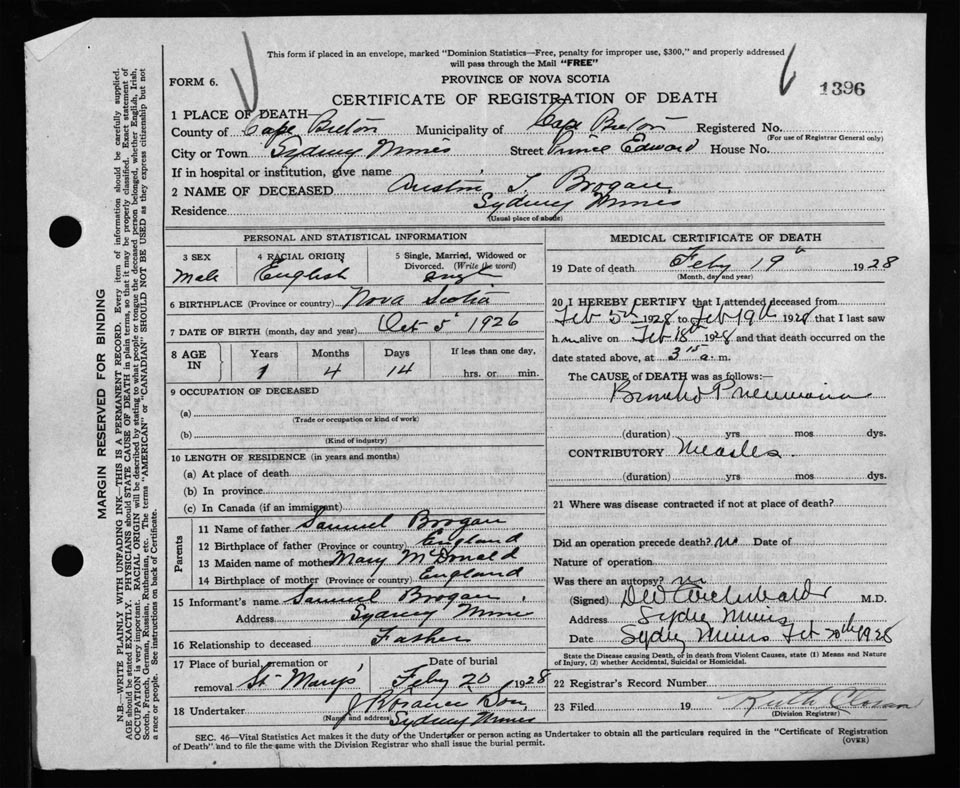 This form if placed in an envelope, marked "Dominion Statistics—Free, penalty for improper use, $300," and properly addressed
will pass through the Mail "FREE"
FORM 6.
PROVINCE OF NOVA SCOTIA
1396
CERTIFICATE OF REGISTRATION OF DEATH
1 PLACE OF DEATH
County of Cape Breton Municipality of Cape Breton Registered No.
(For use of Registrar General only)
City or Town Sydney Mines Street Prince Edward House No.
If in hospital or institution, give name
2 NAME OF DECEASED Austin J. Brogan
Residence Sydney Mines
(Usual place of abode)
PERSONAL AND STATISTICAL INFORMATION
3 SEX Male
4 RACIAL ORIGIN English
5 Single, Married, Widowed or Divorced. (Write the word)
6 BIRTHPLACE (Province or country) Nova Scotia
7 DATE OF BIRTH (month, day and year) Oct 5 1926
8 AGE IN Years Months Days If less than one day,
1 4 14 hrs. or min.
9 OCCUPATION OF DECEASED
(a)
(Trade or occupation or kind of work)
(b)
(Kind of industry)
10 LENGTH OF RESIDENCE (in years and months)
(a) At place of death
(b) In province
(c) In Canada (if an immigrant)
Parents
11 Name of father Samuel Brogan
12 Birthplace of father (Province or country) England
13 Maiden name of mother Mary McDonald
14 Birthplace of mother (Province or country) England
15 Informant's name Samuel Brogan
Address Sydney Mines
16 Relationship to deceased Father
17 Place of burial, cremation or removal St Mary's Date of burial Feby 20 1928
18 Undertaker Son
(Name and address) Sydney Mines
MEDICAL CERTIFICATE OF DEATH
19 Date of death Feby 19th 1928
(Month, day and year)
20 I HEREBY CERTIFY that I attended deceased from
Feb 5th 1928 to Feb 19th 1928 that I last saw
h m alive on Feb 18th 1928 and that death occurred on the
date stated above, at 3 15 a. m.
The CAUSE of DEATH was as follows:—
Broncho Pneumonia
(duration) yrs mos dys.
CONTRIBUTORY Measles
(duration) yrs mos dys.
21 Where was disease contracted if not at place of death?
Did an operation precede death? no Date of
Nature of operation
Was there an autopsy? no
(Signed) M.D.
Address Sydney Mines
Date Sydney Mines Feb 20th 1928
State the Disease causing Death, or in death from Violent Causes, state (1) Means and Nature
of Injury, (2) whether Accidental, Suicidal or Homicidal.
22 Registrar's Record Number
23 Filed 19
(Division Registrar)
SEC. 46—Vital Statistics Act makes it the duty of the Undertaker or person acting as Undertaker to obtain all the particulars required in the "Certificate of Registration
of Death" and to file the same with the Division Registrar who shall issue the burial permit.
(OVER)
MARGIN RESERVED FOR BINDING
N.B.—WRITE PLAINLY WITH UNFADING INK—THIS IS A PERMANENT RECORD. Every item of information should be carefully supplied.
AGE should be stated EXACTLY. PHYSICIANS should STATE CAUSE OF DEATH in plain terms, so that it may be properly classified. Exact statement of
OCCUPATION is very important. RACIAL ORIGIN will be described by stating to what people or tongue the deceased person belonged, whether English, Irish,
Scotch, French, German, Russian, Ruthenian, etc. The terms "AMERICAN" or "CANADIAN" SHOULD NOT BE USED as they express citizenship but not
a race or people. See instructions on back of Certificate.